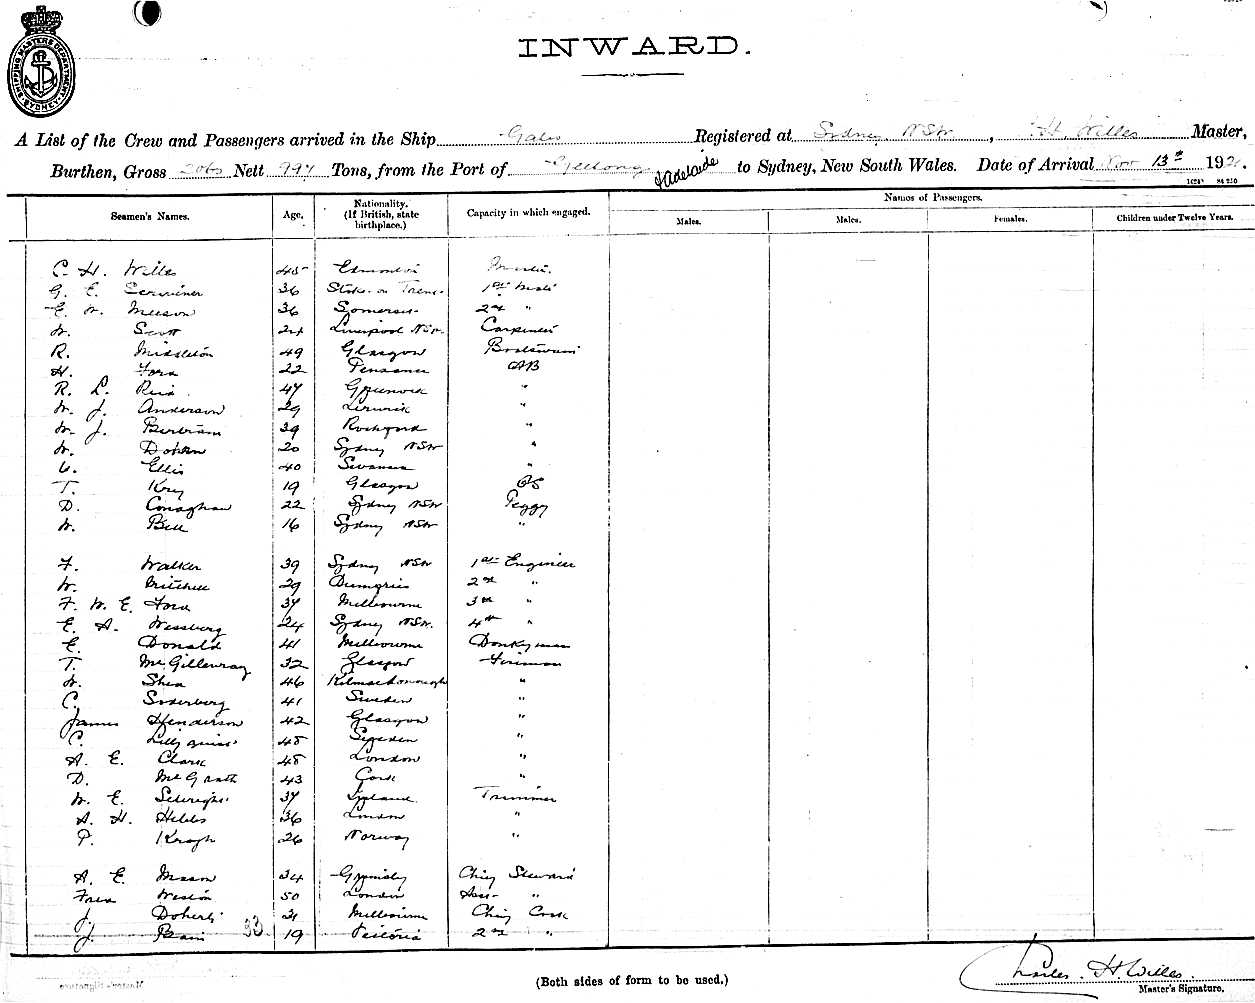 SHIPPING MASTERS DEPARTMENT SYDNEY
INWARD.
A List of the Crew and Passengers arrived in the Ship Registered at Sydney NSW, H Willes Master,
Burthen, Gross Nett 997 Tons, from the Port of Geelong & Adelaide to Sydney, New South Wales. Date of Arrival Nov 13th 192
Seamen's Names. Age. Nationality. (If British, state birthplace.) Capacity in which engaged. Names of Passengers.
Males. Males. Females. Children under Twelve Years.
C. H. Willes Edmonton Master
G. E. 36 Stoke on Trent 1st Mate
E. W. 36 Somerset 2nd "
W. Scott 24 Liverpool NSW Carpenter
R. Middleton 49 Glasgow Boatswain
H. Ford 22 AB
R. L. Reid 47 Greenock "
W. J. Anderson 29 Lerwick "
W. J. Bertram 39 Rochford "
W. 20 Sydney NSW "
Ellis 40 Swansea "
T. 19 Glasgow OS
D. Conaghan 22 Sydney NSW Peggy
W. Bell 16 Sydney NSW "
F. Walker 39 Sydney NSW 1st Engineer
W. Mitchell 29 Dumfries 2nd "
F. W. E. Ford 37 Melbourne 3rd "
E. A. Wessberg 24 Sydney NSW. 4th "
E. Donald 41 Melbourne Donkeyman
T. McGillevray 32 Glasgow Fireman
W. Shea 46 "
C. Soderberg 41 Sweden "
James Henderson 42 Glasgow "
C. Sweden "
A. E. Clark London "
D. McGrath 43 Cork "
W. E. 37 Trimmer
A. H. Hebbs 36 London "
P. Krogh 26 Norway "
A. E. Mason 34 Grimsby Chief Steward
Fred Weston 50 London Asst "
J. Doherty Melbourne Chief Cook
J. Bain 19 Victoria 2nd "
33
Charles. H. Willes.
(Both sides of form to be used.)
Master's Signature.